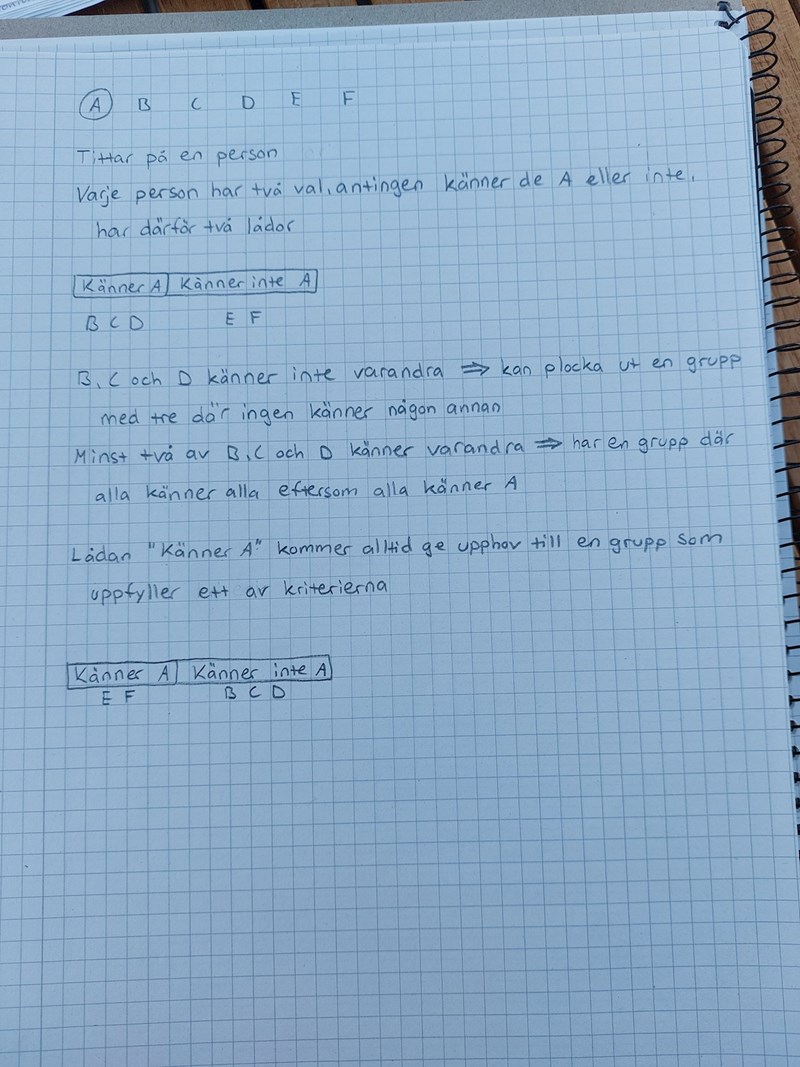 A B C D E F
Tittar på en person
Varje person har två val, antingen känner de A eller inte,
har därför två lådor
Känner A Känner inte A
B C D E F
B, C och D känner inte varandra ⇒ kan plocka ut en grupp
med tre där ingen känner någon annan
Minst två av B, C och D känner varandra ⇒ har en grupp där
alla känner alla eftersom alla känner A
Lådan "Känner A" kommer alltid ge upphov till en grupp som
uppfyller ett av kriterierna
Känner A Känner inte A
E F B C D